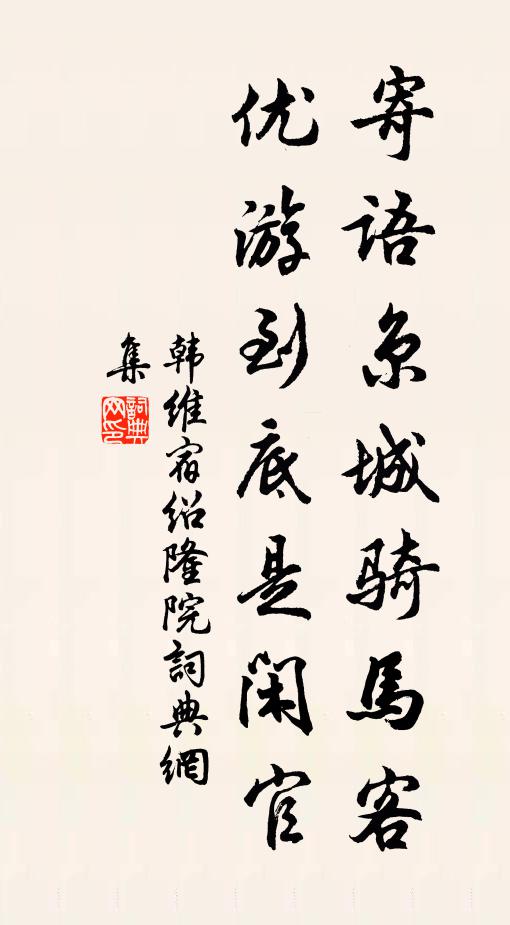 寄语京城骑馬客
优游到底是闲官
韩维宿绍隆院詞典網
集
詞典
网印